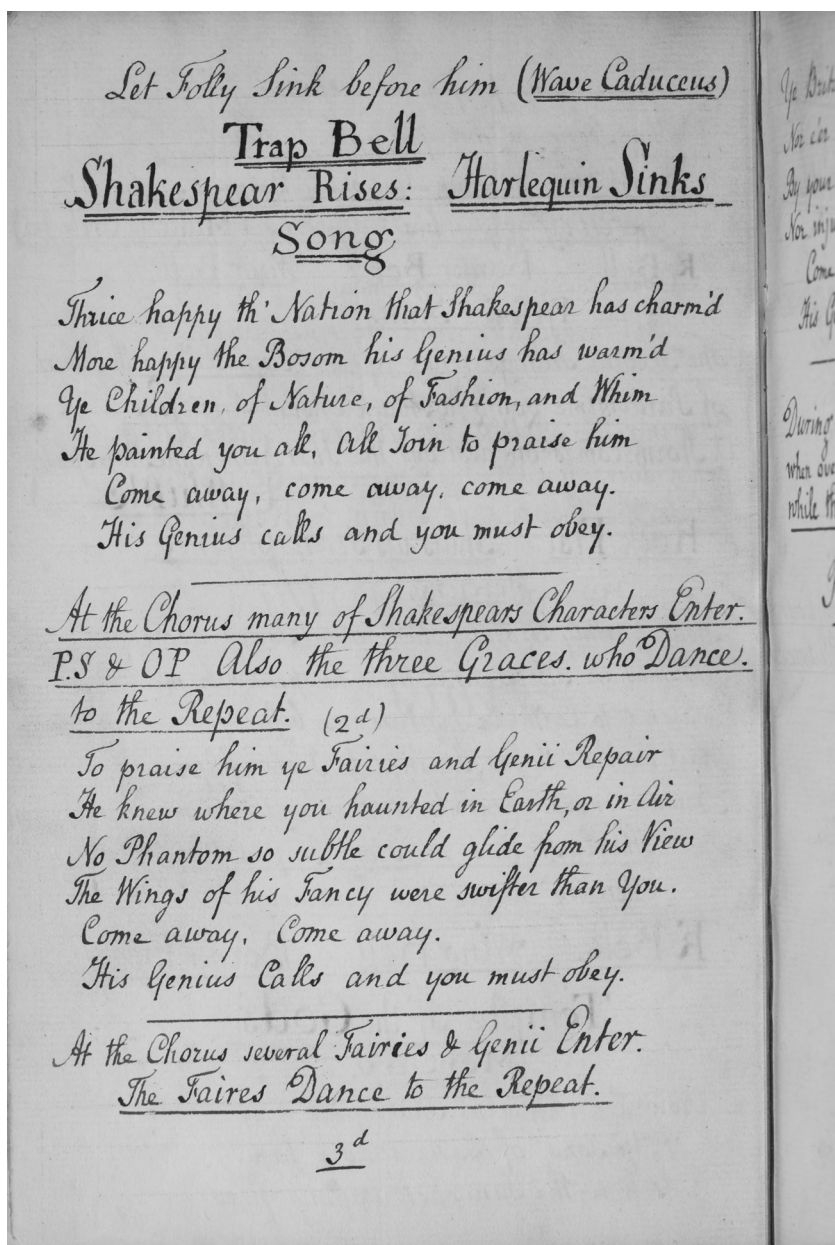 Let Folly Sink before him (Wave Caduceus)
Trap Bell
Shakespear Rises: Harlequin Sinks
Song
Thrice happy th' Nation that Shakespear has charm'd
More happy the Bosom his Genius has warm'd
Ye Children, of Nature, of Fashion, and Whim
He painted you all, all Join to praise him
Come away, come away, come away.
His Genius calls and you must obey.
At the Chorus many of Shakespears Characters Enter.
P.S & OP Also the three Graces. who Dance.
to the Repeat. (2d)
To praise him ye Fairies and Genii Repair
He knew where you haunted in Earth, or in Air
No Phantom so subtle could glide from his View
The Wings of his Fancy were swifter than You.
Come away, Come away.
His Genius Calls and you must obey.
At the Chorus several Fairies & Genii Enter.
The Faires Dance to the Repeat.
3d
Ye
Nor e'er
By your
Nor
Come
His
During
when
while